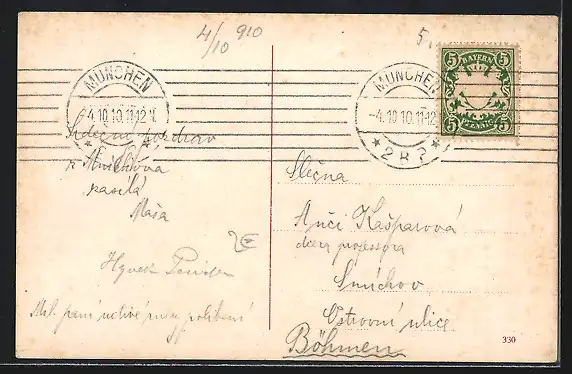 4/10 910
5.
MÜNCHEN
-4.10.10.11-12V.
MÜNCHEN
-4.10.10.11-12
* 2 B P *
5 BAYERN 5
5 PFENNIG 5
Srdečný pozdrav
z Mnichova
zasílá
Máša
Hynek
Mil. paní uctivé ruky políbení
2€
Slečna
Anči Kašparová
dcera professora
Smíchov
Ostrovní ulice
Böhmen
330